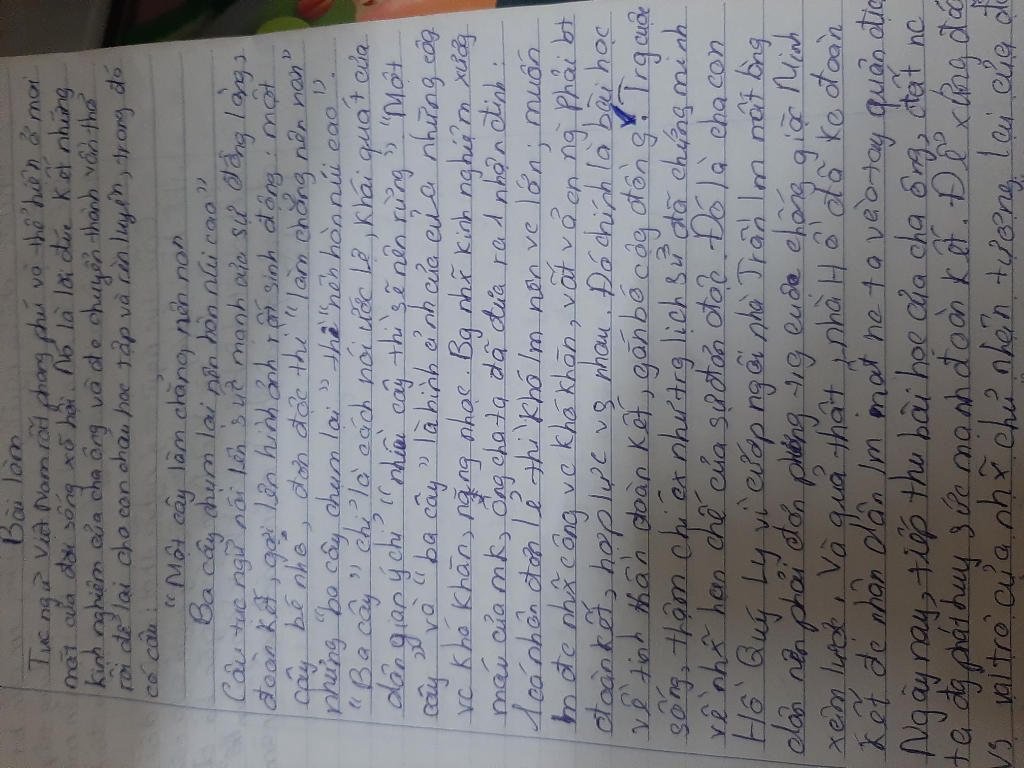 Bài làm
Tục ngữ Việt Nam rất phong phú và thể hiện ở mọi
mặt của đời sống xã hội. Nó là lời đúc kết những
kinh nghiệm của cha ông và đc chuyển thành vần thơ
rồi để lại cho con cháu học tập và rèn luyện, trong đó
có câu:
"Một cây làm chẳng nên non
Ba cây chụm lại nên hòn núi cao"
Câu tục ngữ nói lên sức mạnh của sự đồng lòng,
đoàn kết, gợi lên hình ảnh rất sinh động. một
cây bé nhỏ, đơn độc thì "làm chẳng nên non"
nhưng "ba cây chụm lại" thì "nên hòn núi cao".
"Ba cây" chỉ là cách nói ước lệ, khái quát của
dân gian ý chỉ "nhiều cây thì sẽ nên rừng" "Một
cây" và "ba cây" là hình ảnh của của những công
vc khó khăn, nặng nhọc. Bg nhữ kinh nghiệm xương
máu của mk, ông cha ta đã đưa ra 1 nhận định:
1 cá nhân đơn lẻ thì khó lm nên vc lớn; muốn
lm đc nhữ công vc khó khăn, vất vả con ng phải bt
đoàn kết, hợp lực vs nhau. Đó chính là bài học
về tinh thần đoàn kết, gắn bó cộng đồng. Trg cuộc
sống, thậm chí cx như trg lịch sử đã chứng minh
về nhữ hạn chế của sự đơn độc. Đó là cha con
Hồ Quý Ly vì cướp ngôi nhà Trần lm mất lòng
dân nên phải đơn phương trg cuộc chống giặc Minh
xâm lược. Và quả thật, nhà Hồ đã ko đoàn
kết đc nhân dân lm mất nc ta vào tay quân địch
Ngày nay, tiếp thu bài học của cha ông, đất nc
ta đg phát huy sức mạnh đoàn kết. Để xứng đáng
vs vai trò của nhữ chủ nhân tương lai của